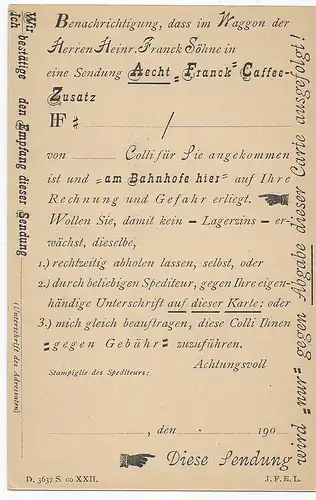 Benachrichtigung, dass im Waggon der
Herren Heinr. Franck Söhne in
eine Sendung Aecht „Franck“ Caffee-
Zusatz
HF # /
von Colli für Sie angekommen
ist und „am Bahnhofe hier“ auf Ihre
Rechnung und Gefahr erliegt.
Wollen Sie, damit kein – Lagerzins – er-
wächst, dieselbe,
1.) rechtzeitig abholen lassen, selbst, oder
2.) durch beliebigen Spediteur, gegen Ihre eigen-
händige Unterschrift auf dieser Karte; oder
3.) mich gleich beauftragen, diese Colli Ihnen
„gegen Gebühr“ zuzuführen.
Achtungsvoll
Stampiglie des Spediteurs:
, den . 190
Diese Sendung
wird „nur“ gegen Abgabe dieser Carte ausgefolgt!
Wir
Ich bestätige den Empfang dieser Sendung
(Unterschrift des Adressaten)
D. 3637 S. 00 XXII.
J. F. E. L.